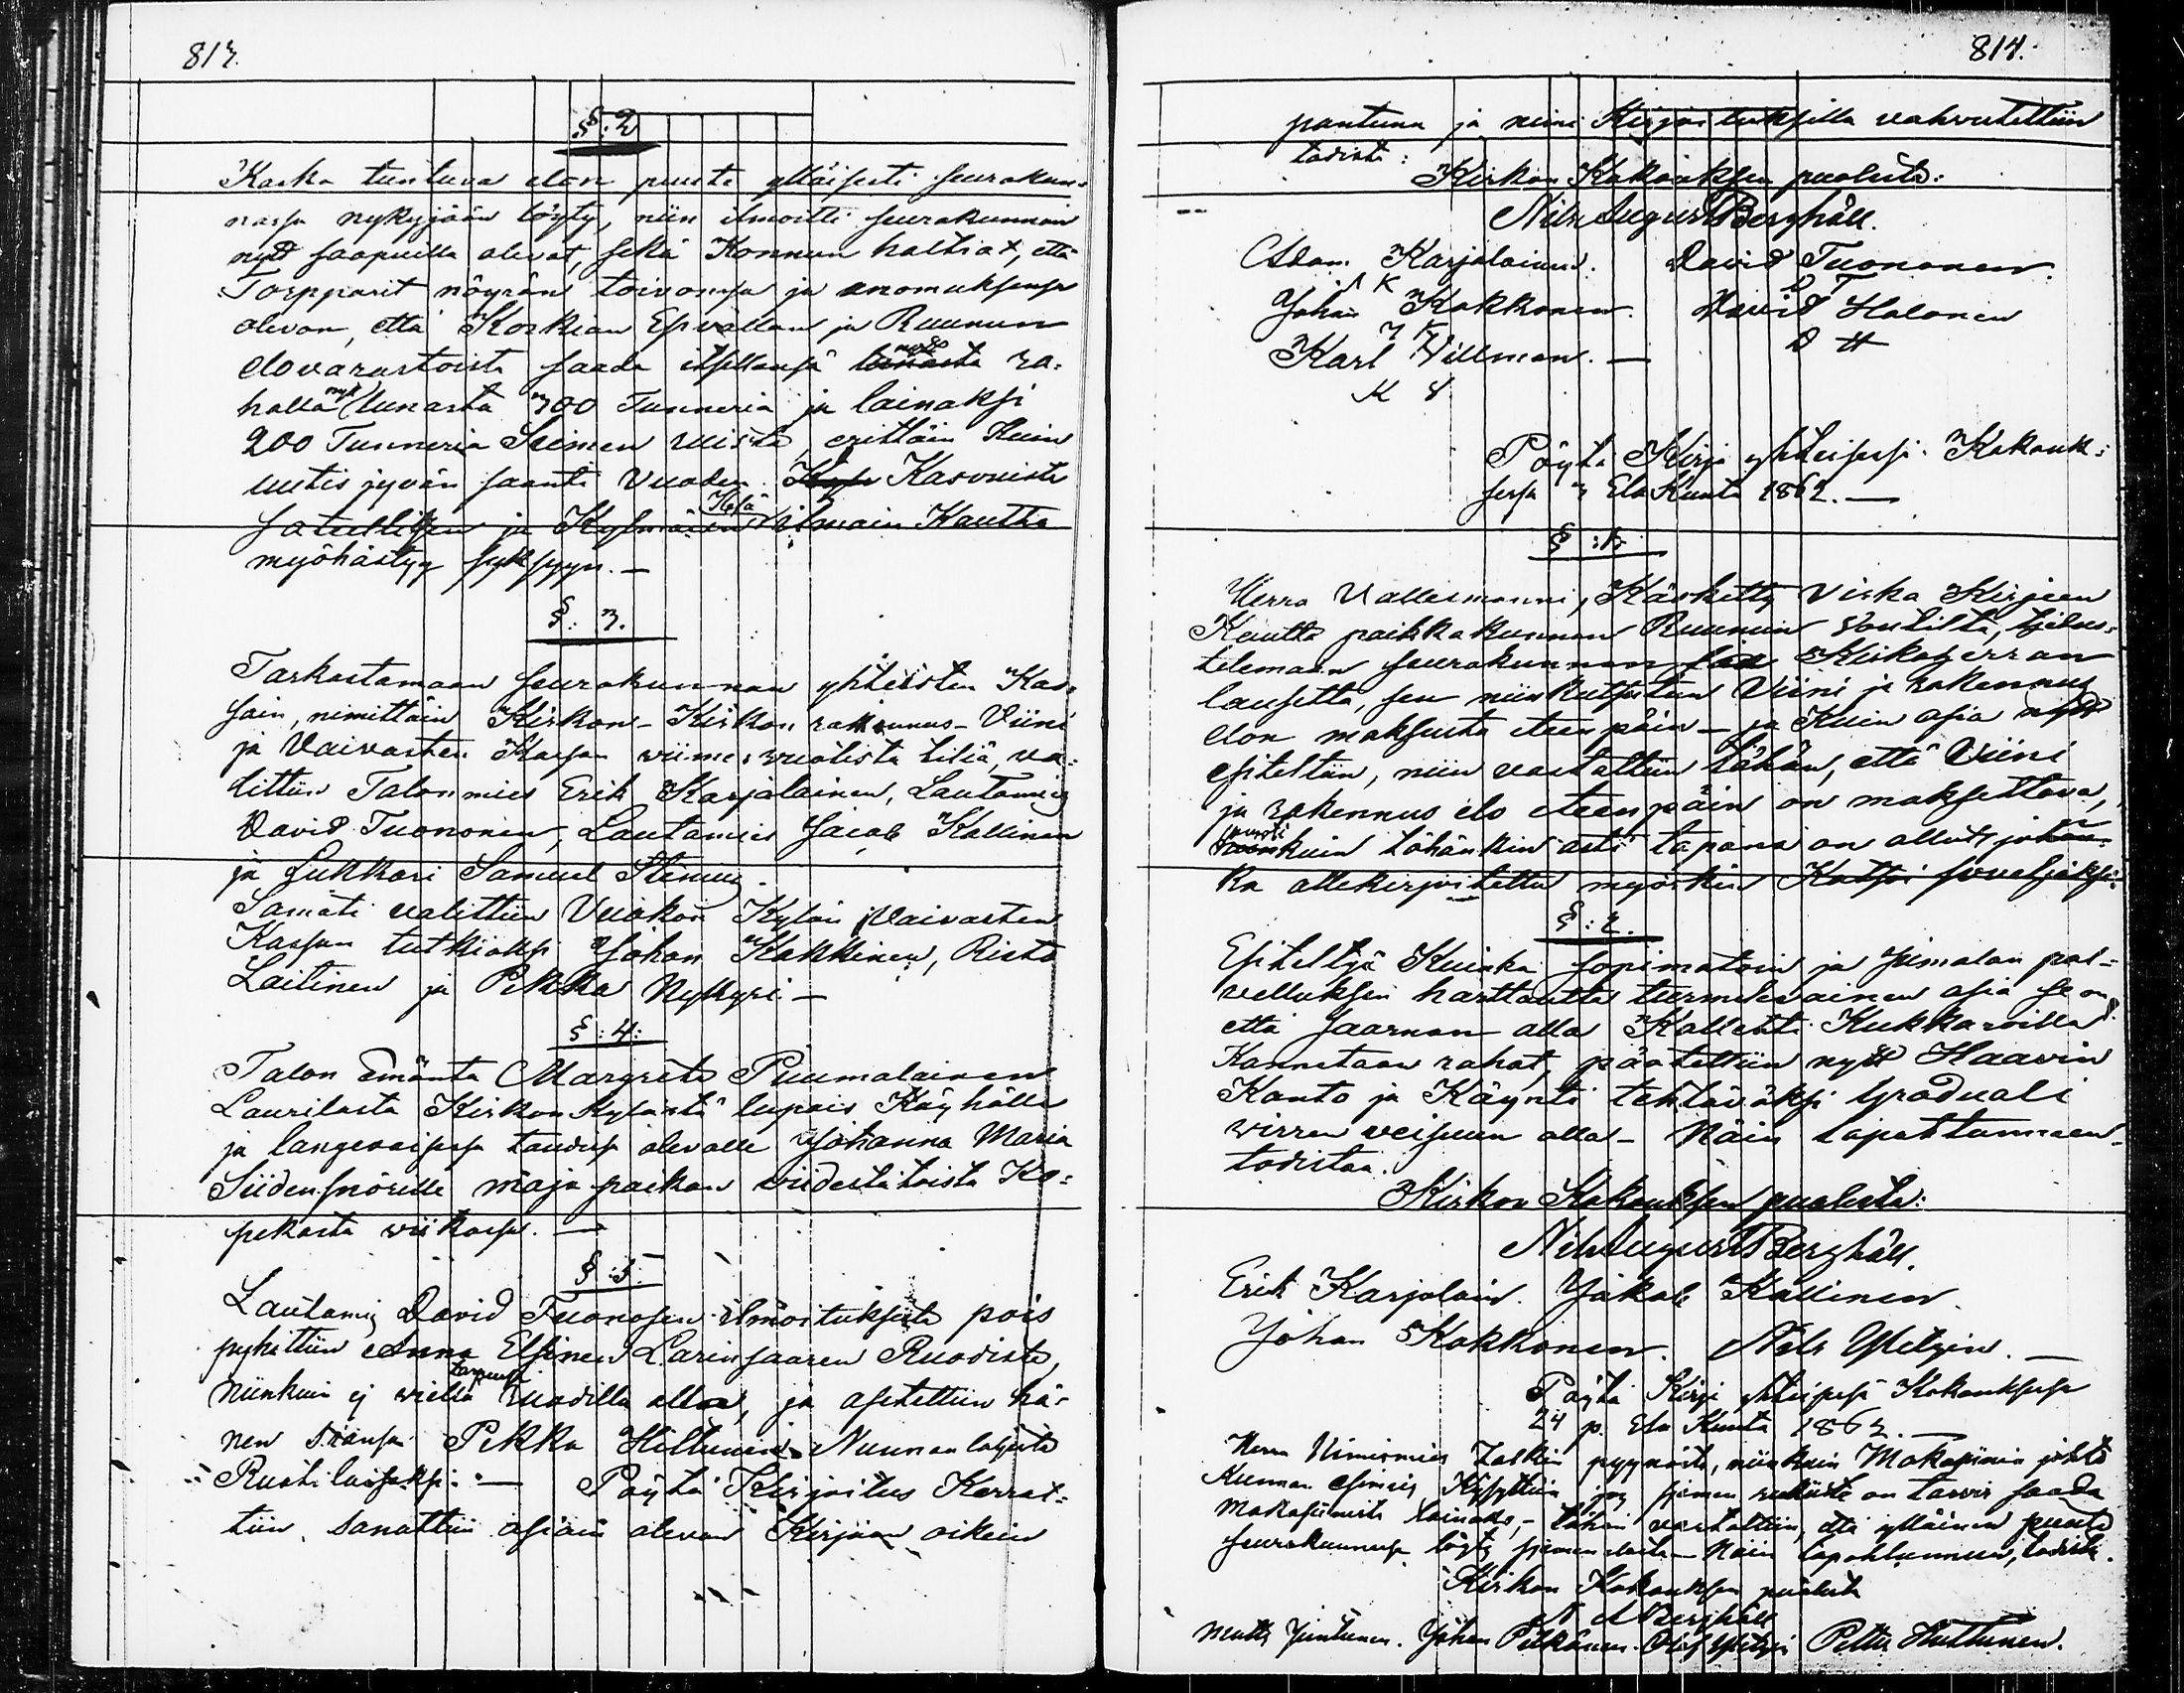 813.
§: 2
Koska tuntuva elon puute ylläisesti seurakun-
nassa nykyjään löyty, niin ilmoitti seurakunnan
nytt saapuilla olevat, sekä Konnun haltiat, että
Torpparit nöyrän toivonsa ja anomuksensa
olevan, että Korkian Esivallan ja Ruunun
elovarastoista saada itsellensä lunasta ra-
halla nytt lunasta 300 Tunneria ja lainaksi
200 Tunneria Seimen ruista, erittäin kuin
uutis jyvän saanti Vuoden Kasvuista
sateellisen ja Kylmäisen Kesä ilmain Kautta
myöhästyy syksyyn. —
§: 3.
Tarkastamaan seurakunnan yhteisten Kas-
sain, nimittäin Kirkon- Kirkon rakennus- Viini
ja Vaivasten Kassan viime vuotista tiliä, va-
littiin Talonmies Erik Karjalainen, Lautamies
David Tuononen, Lautamies Jacob Kallinen
ja Lukkari Samuel Stenius.
Samati valittiin Vuokon Kylän Vaivasten
Kassan tutkioiksi Johan Kakkinen, Risto
Laitinen ja Pekka Nykyri. —
§: 4:
Talon Emäntä Margreta Puumalainen
Laurilasta Kirkon Kylästä lupais Köyhälle
ja langevaisessa taudissa olevalle Johanna Maria
Siidensnörille maja paikan viidestätoista Ko-
pekasta viikossa. —
§: 5.
Lautamies David Tuonosen ilmoituksesta pois
pyhittiin Anna Elsinen Larinsaaren Ruodista,
niinkuin ej vielä tarpeessa ruodilla olla, ja asetettiin hä-
nen siansa Pekka Hiltunen Nunnanlahesta
Ruotilaiseksi. — Pöytä Kirjoitus Kerrat-
tiin, sanottiin asiain olevan Kirjaan oikein
814.
pantuna ja nimi Kirjoituksilla vahvistettiin
todista:
Kirkon Kokouksen puolesta:
Nils August Berghäll.
Adam Karjalainen. David Tuononen.
A K D T
Johan Kokkonen. David Holonen
J K D H
Karl Villman. —
K V
Pöytä Kirja yhteisessä Kokouk-
sessa 3 Elo Kuuta 1862. —
§: 1.
Herra Vallesmanni, Käskitty Virka Kirjeen
Kautta paikkakunnan Ruunun Voutilta,
telemaan seurakunnan Kirkoherran
lausetta, sen niin kutsutun Viini ja rakennus
elon maksusta eteenpäin — ja Kuin asia nytt
esiteltiin, niin vastattiin tähän, että Viini
ja rakennus elo eteenpäin on maksettava,
kuin tähänkin asti tapana on ollut johon-
ka allekirjoitettu myöskin Katsoi
§: 2.
Esiteltyä Kuinka sopimatoin ja Jumalan pal-
velluksen harttautta turmelevainen asia se on,
että saarnan alla Kollehti Kukkaroilla
Kannetaan rahat, päätettiin nytt Haavin
Kanto ja Käynti tehtäväksi Graduali
virren veisuun alla — Näin tapahtuneen
todistaa.
Kirkon Kokouksen puolesta:
Nils August Berghäll.
Erik Karjalain. Jakob Kallinen
Johan Kokkonen. Nils —
Pöytä Kirja yhteisessä Kokouksessa
24 p. Elo Kuuta 1862. —
Herra Nimismies pyynnöstä, niinkuin Makasiinin johto
Kunnan esimies Kysyttiin jos siemen rukiista on tarvis saada
Makasiinista lainaks, — tähän vastattiin, että ylläinen puute
seurakunnassa löyty siemen elosta — Näin tapahtunneen, todista.
Kirkon Kokouksen puolesta
N A Berghäll
Matts Juntunen. Johan Pitkänen. Olof Pettu Huttunen.